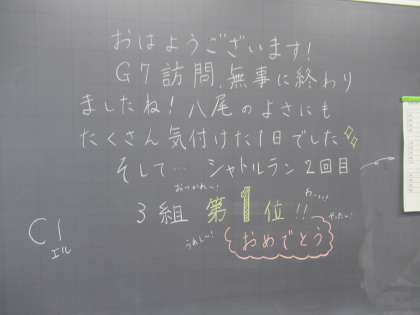 おはようございます!
G7訪問、無事に終わり
ましたね!八尾のよさにも
たくさん気付けた1日でした
そして… シャトルラン2回目
おつかれ〜! わーい!
3組 第1位!!
やったー!
うれしー! おめでとう
C1
エル